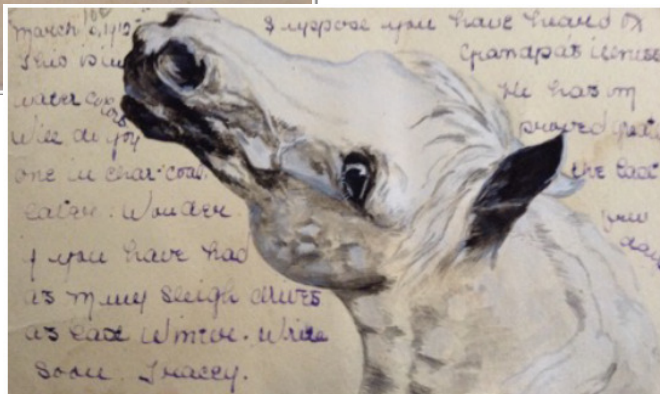 March 9, 1915
This is my
water color
Will do you
one in charcoal
later. Wonder
if you have had
as many sleigh drives
as last winter. Write
soon. Tracey.
I suppose you have heard of
Grandpa's illness
He has im
proved
the last
few
days